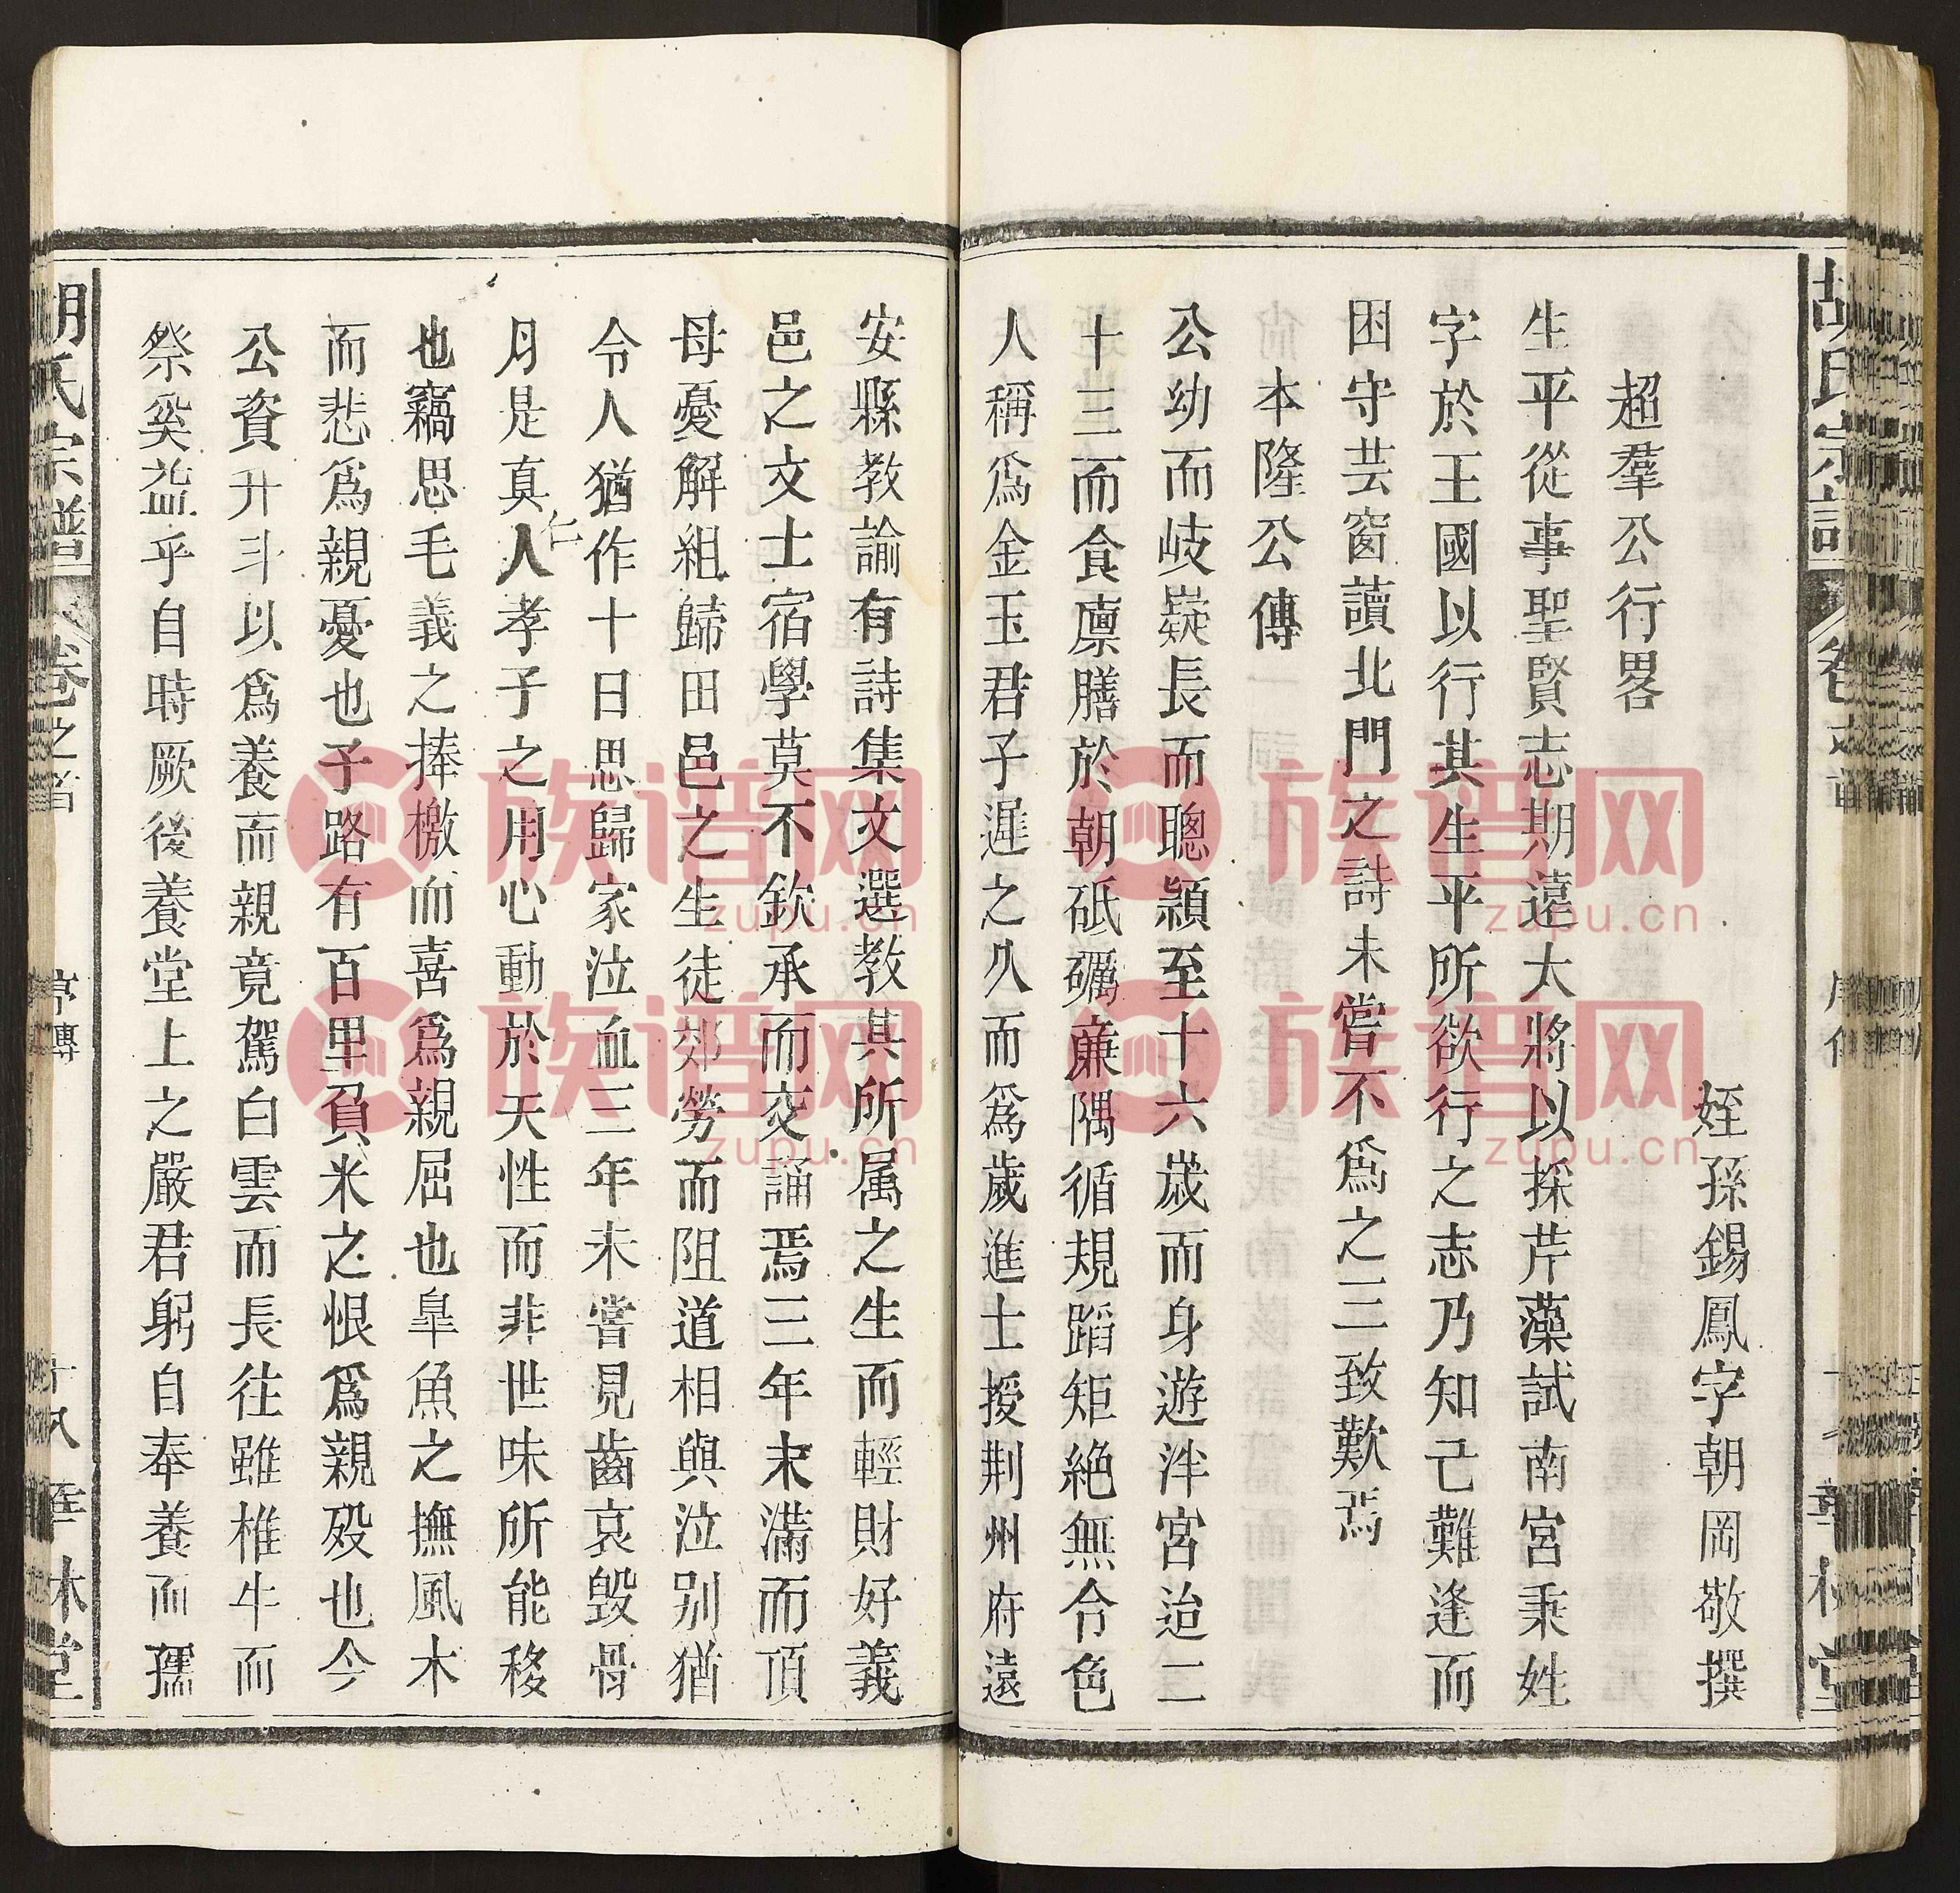 姪孫錫鳳字朝岡敬撰
超羣公行畧
生平從事聖賢志期遠大將以採芹藻試南宮秉姓
字於王國以行其生平所欲行之志乃知己難逢而
困守芸窗讀北門之詩未嘗不爲之三致歎焉
本隆公傳
公幼而岐嶷長而聰頴至十六歲而身遊泮宮迨二
十三而食廪膳於朝砥礪廉隅循規蹈矩絶無令色
人稱爲金玉君子遲之久而爲歲進士授荆州府遠
安縣教諭有詩集文選教其所属之生而輕財好義
邑之文士宿學莫不欽承而交誦焉三年未滿而頂
母憂解組歸田邑之生徒郊勞而阻道相與泣別猶
令人猶作十日思歸家泣血三年未嘗見齒哀毀骨
月是真仁人孝子之用心動於天性而非世味所能移
也竊思毛義之捧檄而喜爲親屈也臯魚之撫風木
而悲爲親憂也子路有百里負米之恨爲親殁也今
公資升斗以爲養而親竟駕白雲而長往雖椎牛而
祭奚益乎自時厥後養堂上之嚴君躬自奉養而孺
胡氏宗譜
卷之首
序傳
十八
華林堂
族谱网
zupu.cn
族谱网
zupu.cn
族谱网
zupu.cn
族谱网
zupu.cn